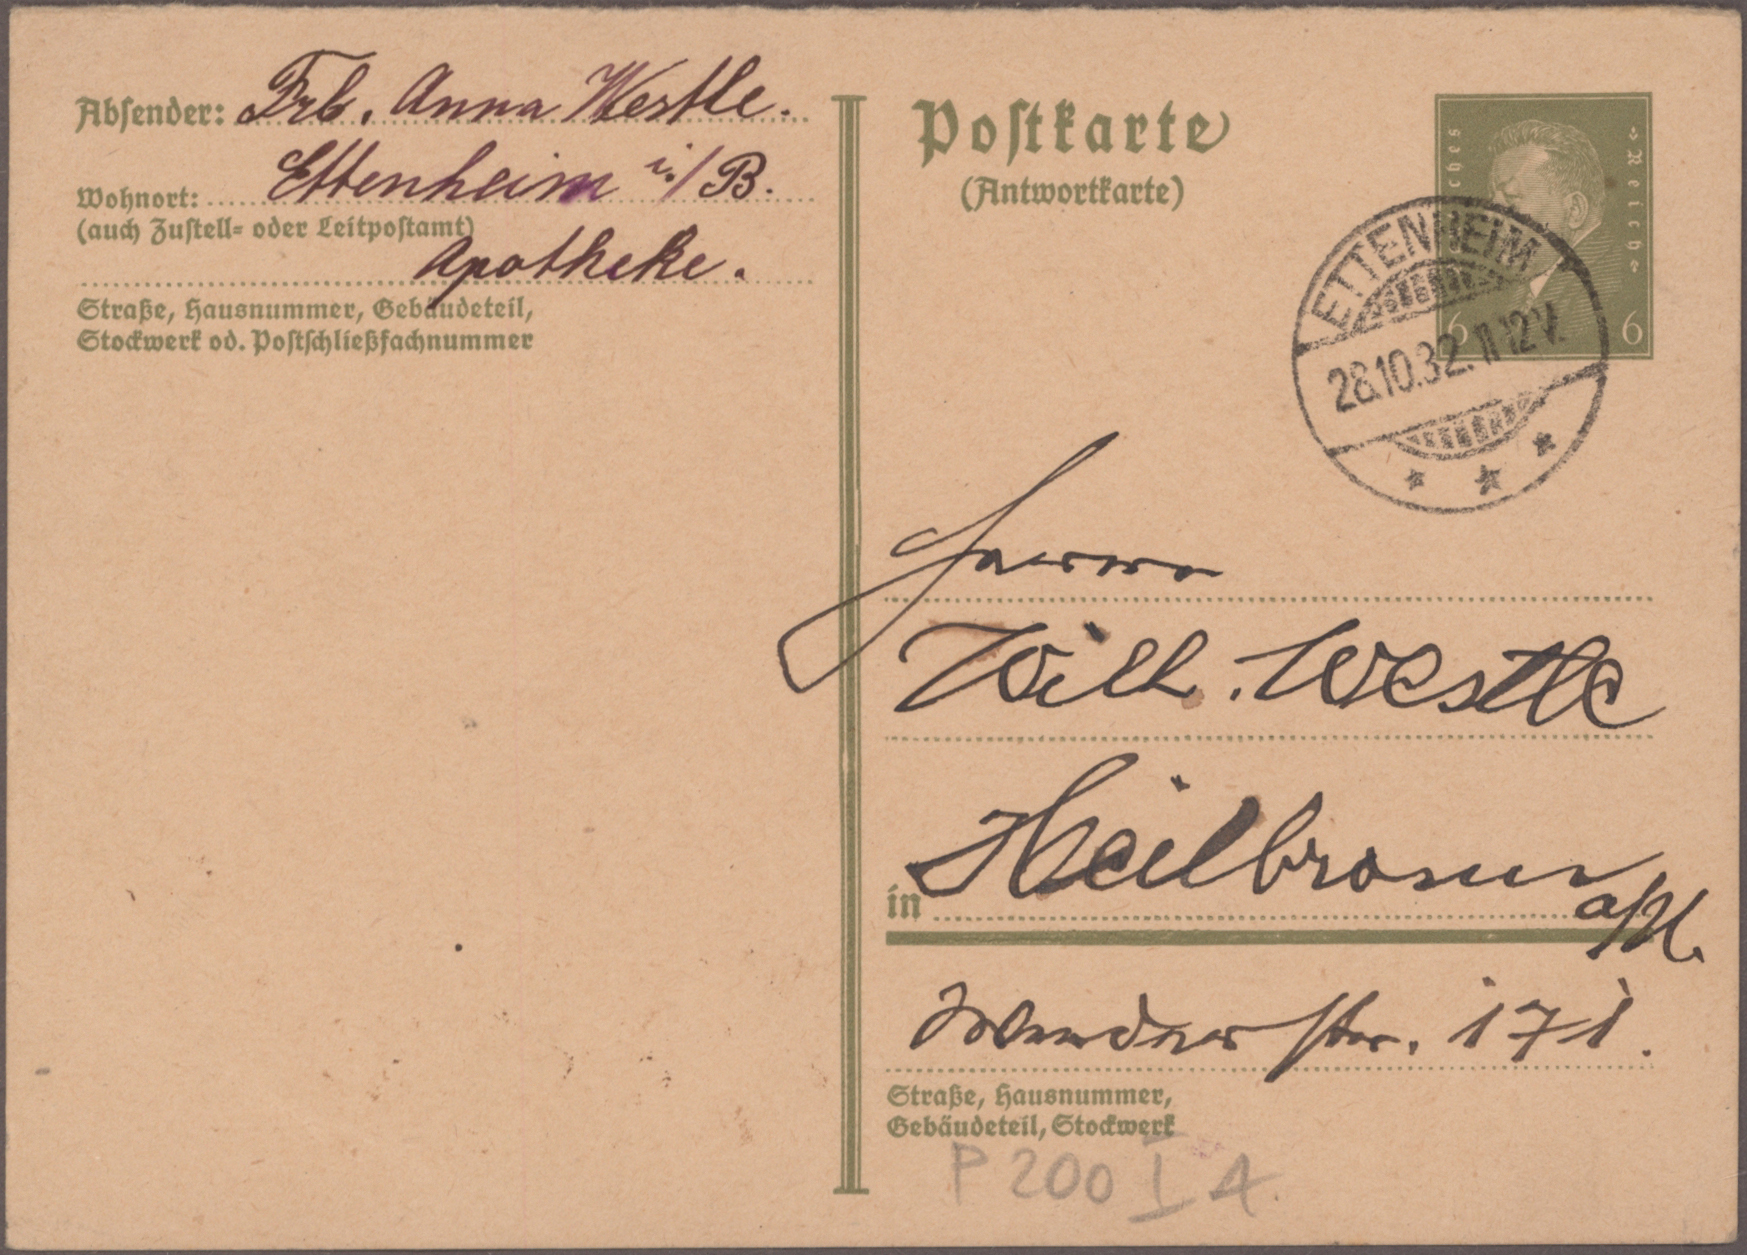 Absender: Frl. Anna Westle.
Wohnort: Ettenheim i./B.
(auch Zustell- oder Leitpostamt)
Apotheke.
Straße, Hausnummer, Gebäudeteil,
Stockwerk od. Postschließfachnummer
Postkarte
(Antwortkarte)
Reich
6 6
ETTENHEIM
28.10.32.11-12V.
Herrn
Wilh. Westle
in Heilbronn
a/N.
str. 171.
Straße, Hausnummer,
Gebäudeteil, Stockwerk
P 200 I A